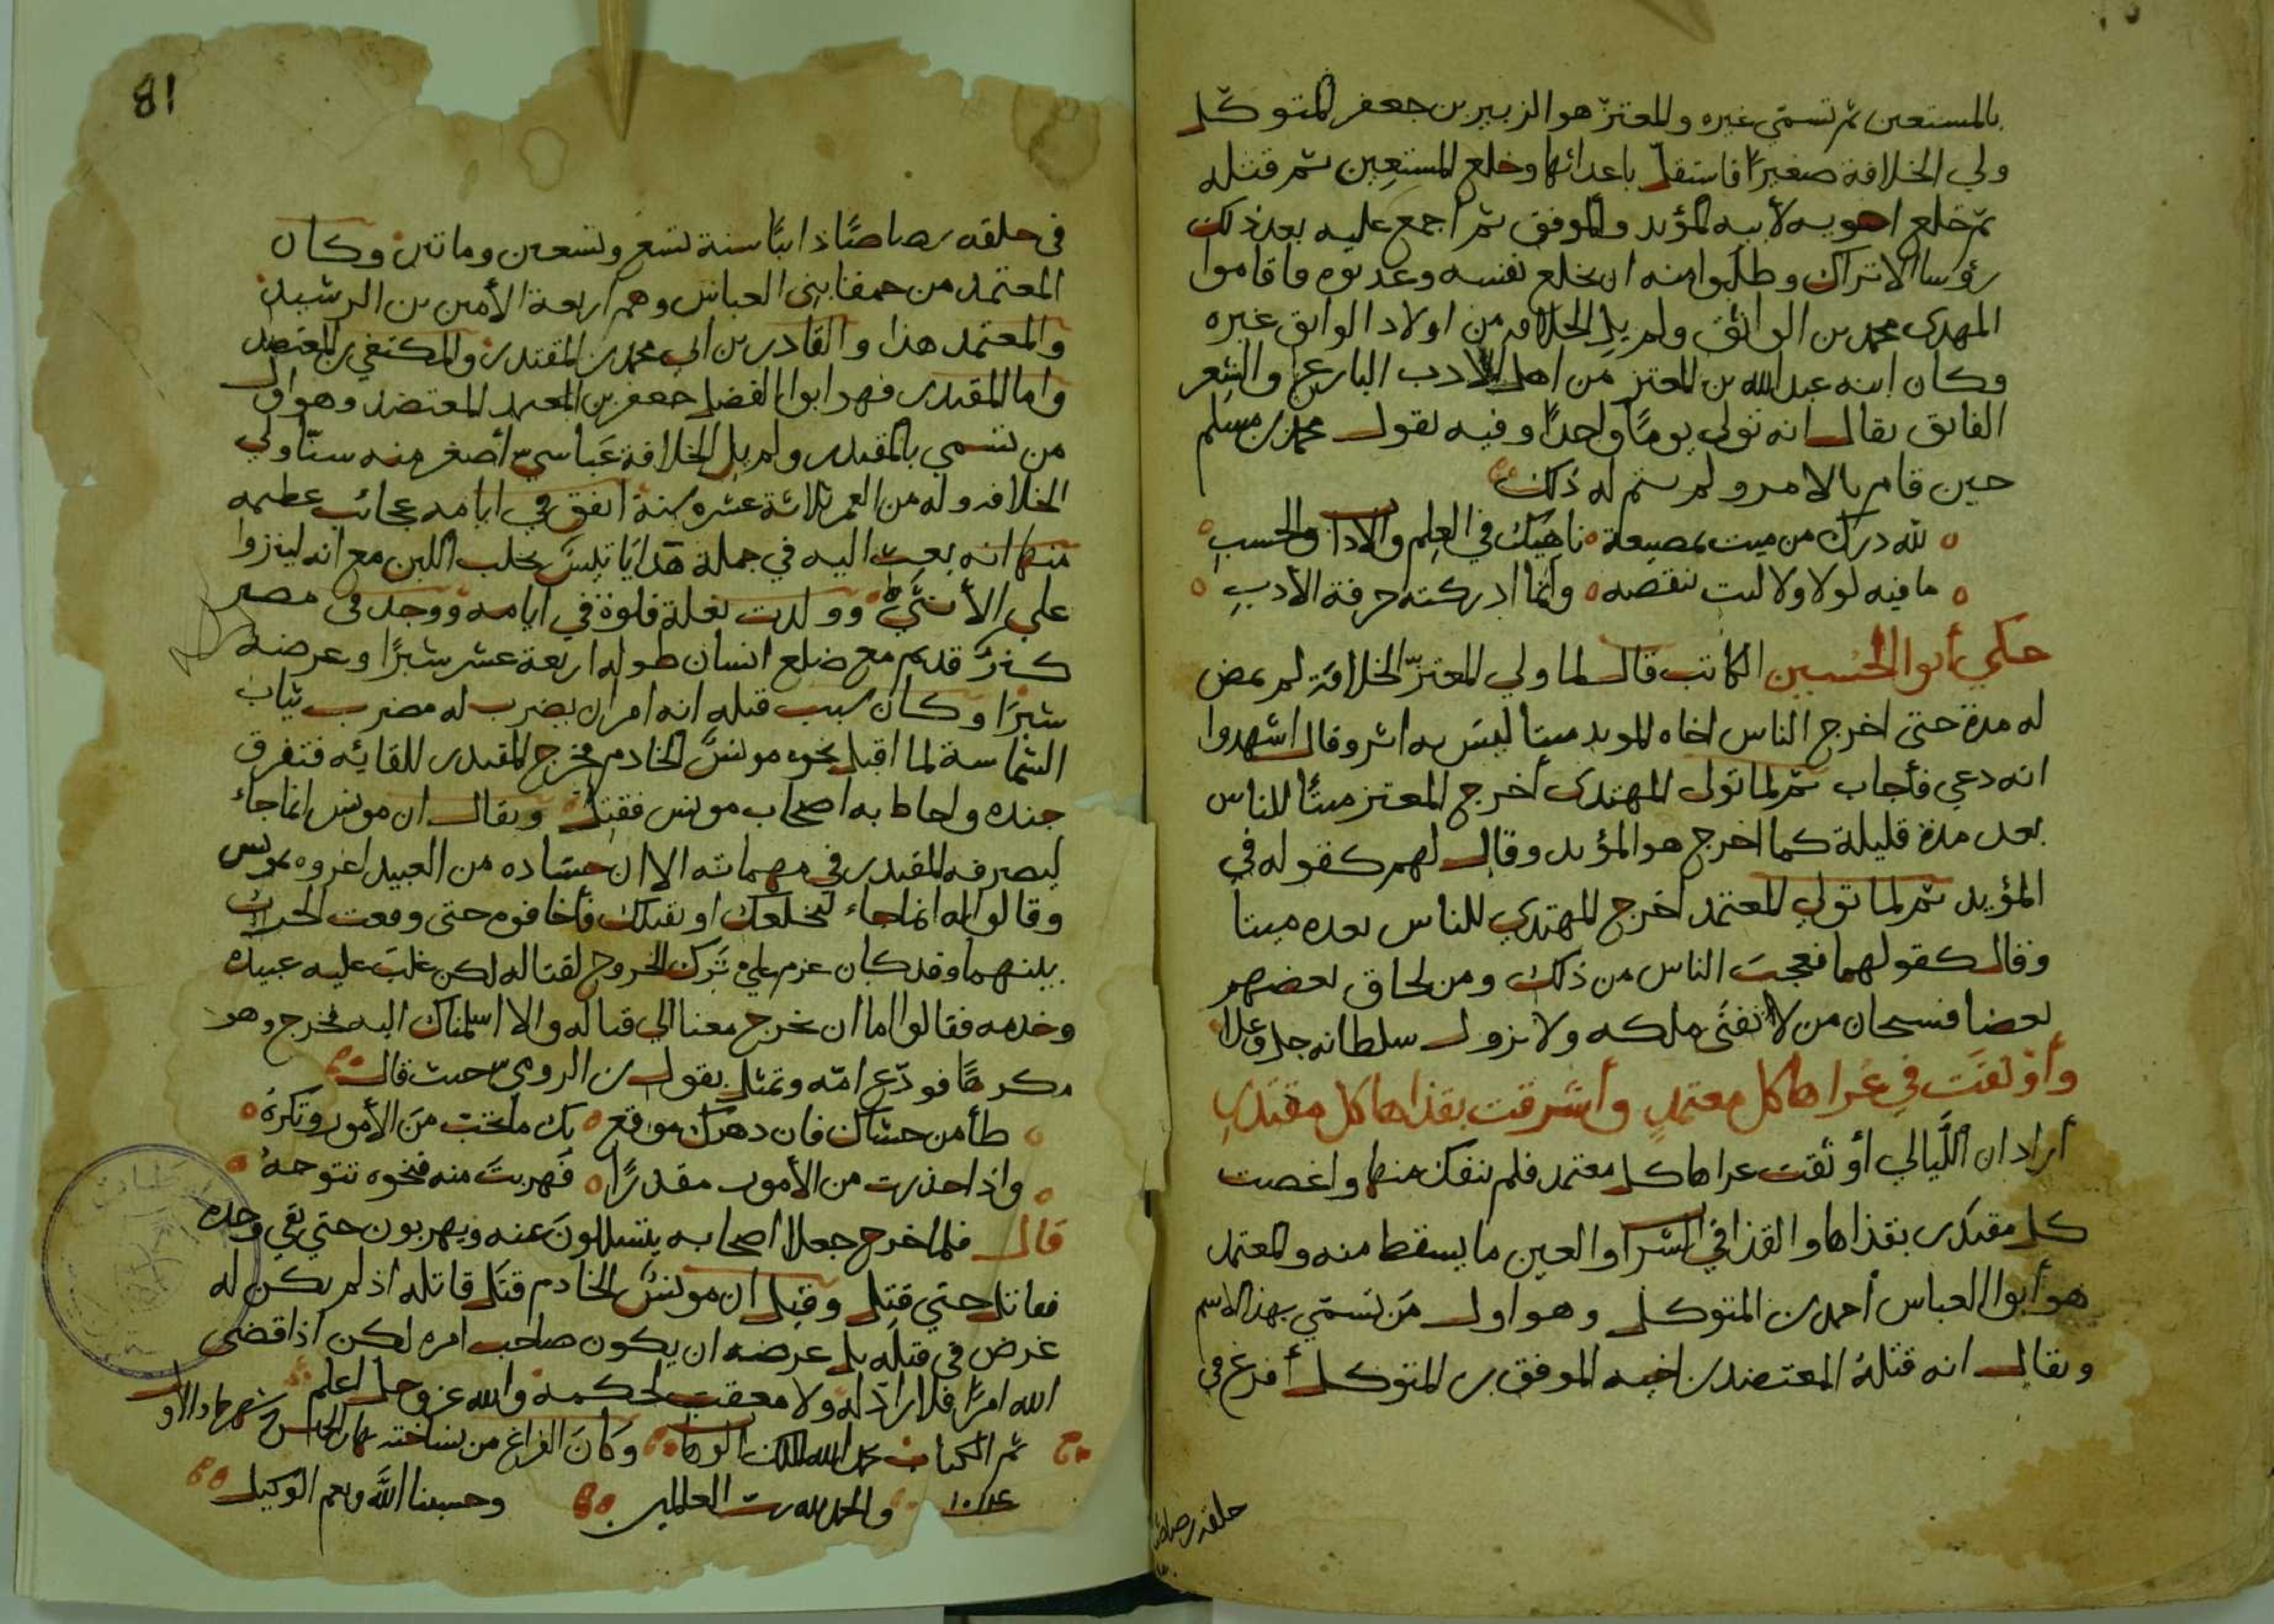 بالمستعين ثم تسمي غيره والمعتز هو الزبير بن جعفر المتوكل
ولي الخلافة صغيرًا فاستقل باعدائها وخلع المستعين ثم قتله
ثم خلع اخويه لأبيه المؤيد والموفق ثم اجمع عليه بعد ذلك
رؤسا الاتراك وطلبوا منه ان يخلع نفسه وعذبوه فاقاموا
المهدى محمد بن الواثق ولم يلِ الخلافه من اولاد الواثق غيره
وكان ابنه عبد الله بن المعتز من اهل الادب البارع والشعر
الفائق يقال انه تولى يومًا واحدًا وفيه يقول محمد بن مسلم
حين قام بالامر ولم يتم له ذلك
لله درك من ميت بمضيعة ناهيك في العلم والاداب والحسب
ما فيه لولا ولا ليت تنقصه وانما ادركته حرفة الأدب
حكي أبو الحسين الكاتب قال لما ولي المعتزّ الخلافة لم يمض
له مدة حتى اخرج الناس اخاه المويد ميتا ليس به اثر وقال اشهدوا
انه دعي فأجاب ثم لما تولى المهتدى أخرج المعتز ميتًا للناس
بعد مدة قليلة كما اخرج هو المؤيد وقال لهم كقوله في
المؤيد ثم لما تولي المعتمد اخرج المهتدي للناس بعده ميتا
وقال كقولهما فعجب الناس من ذلك ومن لحاق بعضهم
بعضا فسبحان من لا يفنى ملكه ولا يزول سلطانه جل وعلا
وأوثقت في عُراها كل معتمدٍ وأشرقت بقذاها كل مقتدرِ
أراد ان اللَّيالي أوثقت عراها كل معتمد فلم ينفك منها واغصت
كل مقتدر بقذاها والقذا في الشراب والعين ما يسقط منه والمعتمد
هو أبوا العباس أحمد بن المتوكل وهو اول من تسمّي بهذا الاسم
ويقال انه قتلهُ المعتضد بن اخيه الموفق بن المتوكل أفرغ في
حلقه رصاصًا
81
في حلقه رصاصًا ذائبًا سنة تسع وتسعين وماتين وكان
المعتمد من حمقا بنى العباس وهم اربعة الأمين بن الرشيد
والمعتمد هذا والقادر بن ابي محمد بن المقتدر والمكتفي بن المعتضد
واما المقتدر فهو ابوا الفضل جعفر بن المعتمد المعتضد وهو اول
من تسمي بالمقتدر ولم يلِ الخلافة عباسي أصغر منه سنّا ولي
الخلافه وله من العمر ثلاثة عشره سنة اتفق في ايامه عجائب عظيمه
منها انه بعث اليه في جملة هدايَا تيس يحلب اللبن مع انه لينزوا
علي الأنثي وولدت بغلة فلوة في ايامه ووجد في مصر
كنز قديم مع ضلع انسان طوله اربعة عشر شبرًا وعرضه
شبرًا وكان سبب قتله انه امر ان يضرب له مضرب بباب
الشماسة لما اقبل نحوه مونس الخادم فخرج المقتدر للقائه فتفرق
جنده واحاط به اصحاب مونس فقتل ويقال ان مونس انما جاء
ليصرفه المقتدر في مهماته الا ان حسّاده من العبيد اغروه بمونس
وقالوا له انما جاء ليخلعك او يقتلك فأخافوه حتى وقعت الحرب
بينهما وقد كان عزم علي ترك الخروج لقتاله لكن غلب عليه عبيده
وخدمه فقالوا اما ان تخرج معنا الي قتاله والا اسلمناك اليه فخرج وهو
مكرهًا فودّع امّه وتمثل بقول بن الرومي حيث قال
طأمن حشاك فان دهرك موقع بك ما تحب من الأمور وتكرهُ
واذا حذرت من الأمور مقدرًا فهربت منه فنحوه تتوجهُ
قال فلما خرج جعلا اصحابه يتسللونَ عنه ويهربون حتي بقي وحده
فقاتل حتي قتل وقيل ان مونسَ الخادم قتل قاتله اذ لم يكن له
غرض في قتله بل غرضه ان يكون صاحب امره لكن اذا قضى
الله امرًا فلا رادّ له ولا معقب لحكمه والله عز وجل اعلم
تم الكتاب بحمد الله الملك الوهاب وكانَ الفراغ من نساخته نهار شهر جماد الاول
والحمد لله رب العالمين وحسبنا الله ونعم الوكيل